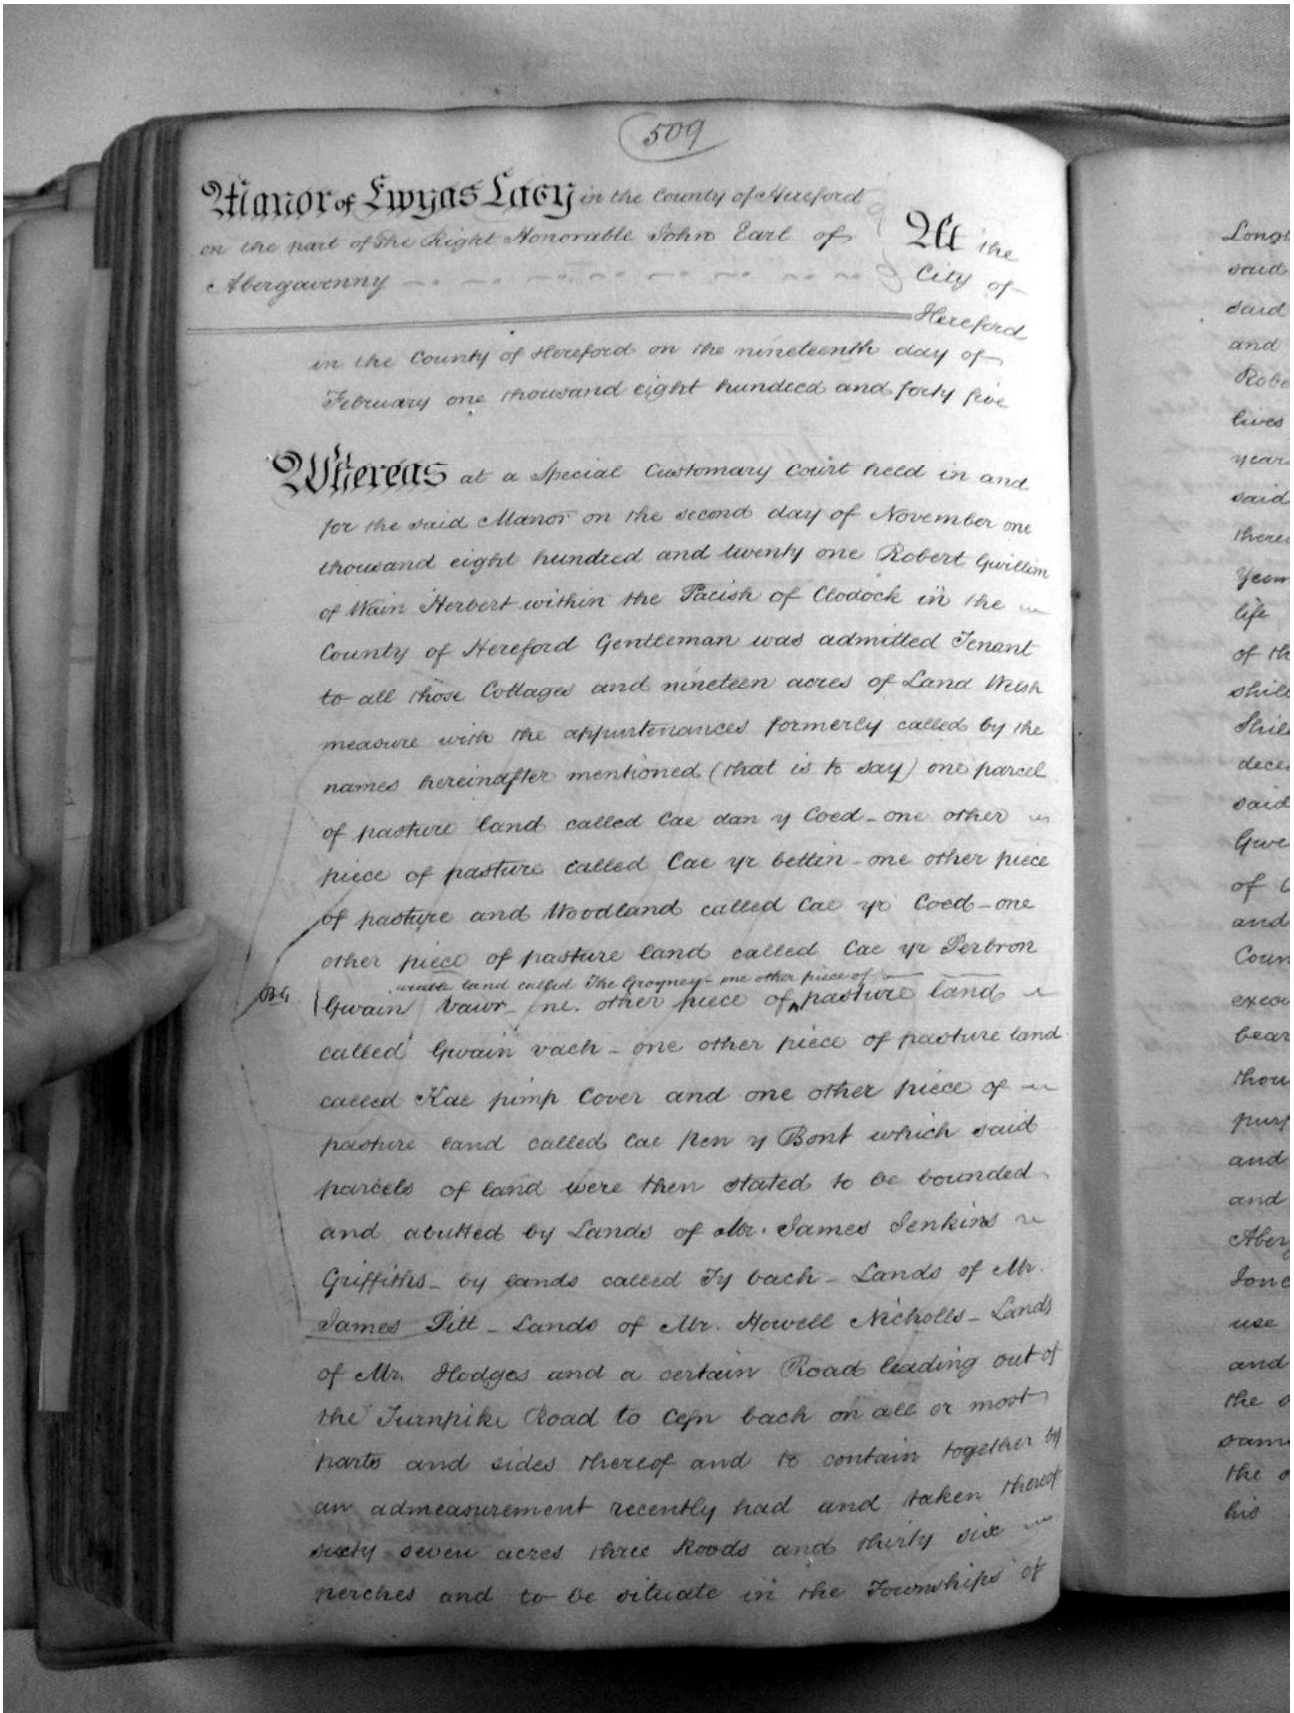 509
Manor of Ewyas Lacy in the County of Hereford
on the part of The Right Honorable John Earl of
Abergavenny
At the
City of
Hereford
in the County of Hereford on the nineteenth day of
February one thousand eight hundred and forty five
Whereas at a Special Customary Court held in and
for the said Manor on the second day of November one
thousand eight hundred and twenty one Robert Gwillim
of Wain Herbert within the Parish of Clodock in the
County of Hereford Gentleman was admitted Tenant
to all those Cottages and nineteen acres of Land Welsh
measure with the appurtenances formerly called by the
names hereinafter mentioned (that is to say) one parcel
of pasture land called Cae dan y Coed - one other
piece of pasture called Cae yr bettin - one other piece
of pasture and Woodland called Cae yr Coed - one
other piece of pasture land called Cae yr Perbron
arable land called The Grogney - one other piece of
Gwain vawr - one other piece of pasture land
called Gwain vach - one other piece of pasture land
called Kae pimp Cover and one other piece of
pasture land called Cae pen y Bont which said
parcels of land were then stated to be bounded
and abutted by Lands of Mr. James Jenkins
Griffiths - by lands called Ty bach - Lands of Mr.
James Pitt - Lands of Mr. Howell Nicholls - Lands
of Mr. Hodges and a certain Road leading out of
the Turnpike Road to Cefn bach on all or most
parts and sides thereof and to contain together by
an admeasurement recently had and taken thereof
sixty seven acres three Roods and thirty six
perches and to be situate in the Townships of
said
said
and
lives
year
said
life
of
said
of
and
bear
and
and
use
and
the
the
his